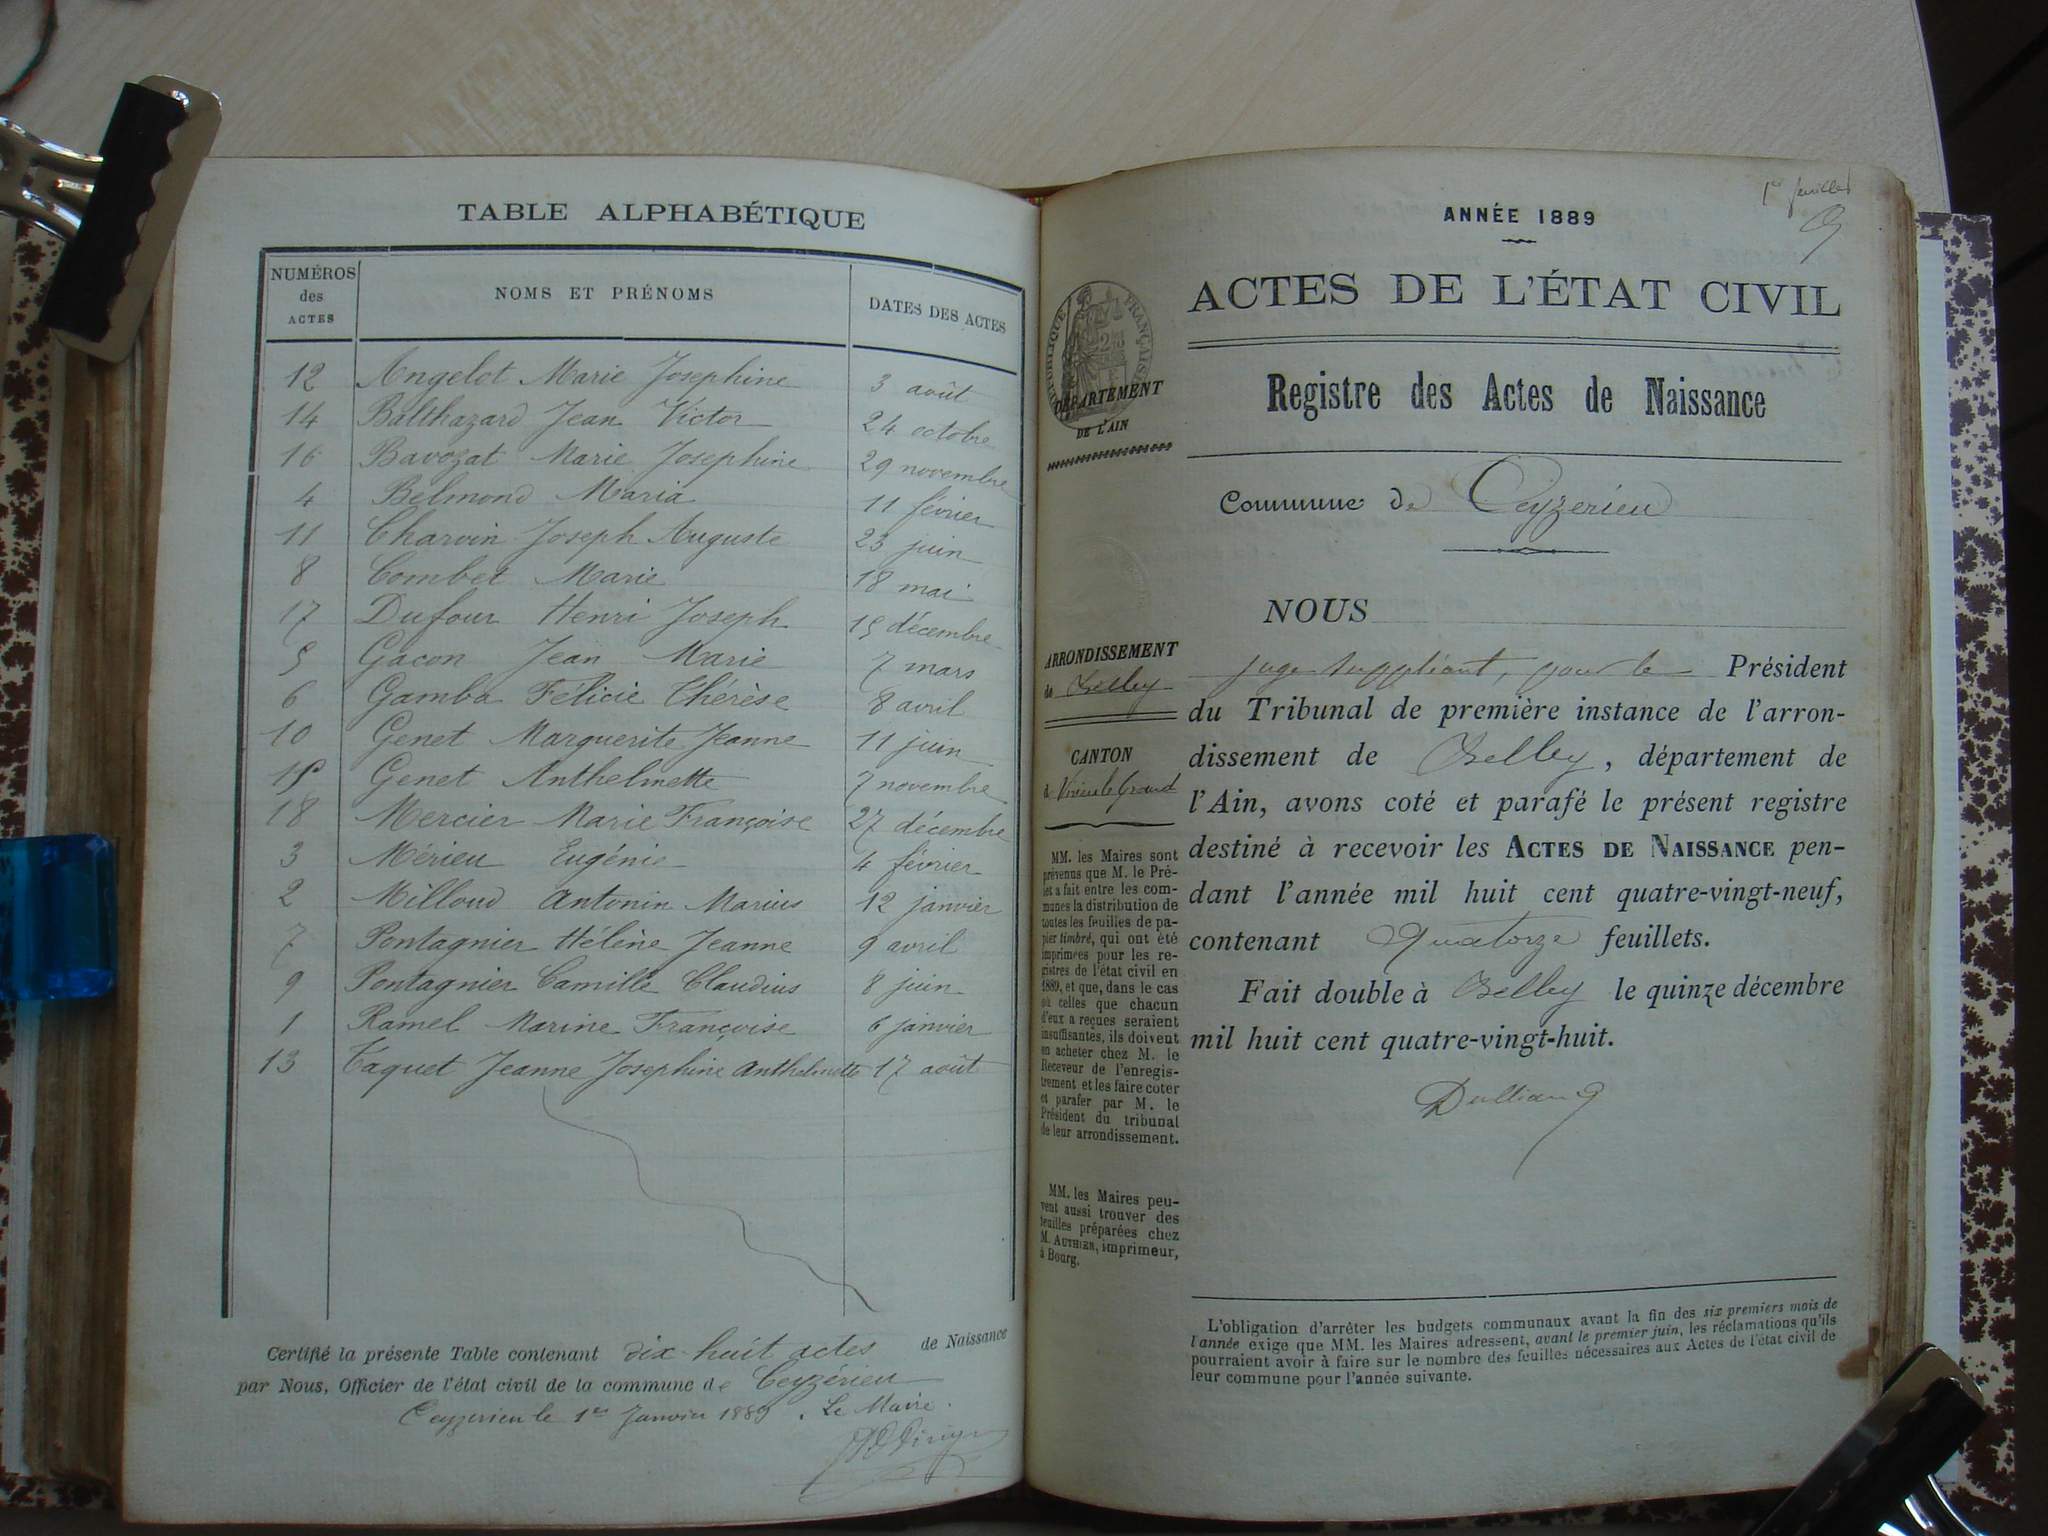 TABLE ALPHABÉTIQUE
NUMÉROS des ACTES NOMS ET PRÉNOMS DATES DES ACTES
12 Angelot Marie Josephine 3 août
14 Balthazard Jean Victor 24 octobre
16 Bavozat Marie Josephine 29 novembre
4 Belmond Maria 11 février
11 Charvin Joseph Auguste 23 juin
8 Combet Marie 18 mai
17 Dufour Henri Joseph 15 décembre
5 Gacon Jean Marie 7 mars
6 Gamba Félicie Thérèse 8 avril
10 Genet Marguerite Jeanne 11 juin
15 Genet Anthelmette 7 novembre
18 Mercier Marie Françoise 27 décembre
3 Mérieu Eugénie 4 février
2 Milloud Antonin Marius 12 janvier
7 Pontagnier Hélène Jeanne 9 avril
9 Pontagnier Camille Claudius 8 juin
1 Ramel Marine Françoise 6 janvier
13 Taquet Jeanne Josephine Anthelmette 17 août
Certifié la présente Table contenant dix huit actes de Naissance
par Nous, Officier de l'état civil de la commune de Ceyzérieu
Ceyzerieu le 1er Janvier 1889. Le Maire.
1er feuillet
ANNÉE 1889
ACTES DE L'ÉTAT CIVIL
RÉPUBLIQUE FRANÇAISE
DÉPARTEMENT
DE L'AIN
Registre des Actes de Naissance
Commune de Ceyzerieu
ARRONDISSEMENT
de Belley
CANTON
d Virieu le Grand
MM. les Maires sont
prévenus que M. le Pré-
fet a fait entre les com-
munes la distribution de
toutes les feuilles de pa-
pier timbré, qui ont été
imprimées pour les re-
gistres de l'état civil en
1889, et que, dans le cas
où celles que chacun
d'eux a reçues seraient
insuffisantes, ils doivent
en acheter chez M. le
Receveur de l'enregis-
trement et les faire coter
et parafer par M. le
Président du tribunal
de leur arrondissement.
MM. les Maires peu-
vent aussi trouver des
feuilles préparées chez
M. AUTHIER, imprimeur,
à Bourg.
NOUS
juge suppléant, pour le Président
du Tribunal de première instance de l'arron-
dissement de Belley, département de
l'Ain, avons coté et parafé le présent registre
destiné à recevoir les ACTES DE NAISSANCE pen-
dant l'année mil huit cent quatre-vingt-neuf,
contenant Quatorze feuillets.
Fait double à Belley le quinze décembre
mil huit cent quatre-vingt-huit.
L'obligation d'arrêter les budgets communaux avant la fin des six premiers mois de
l'année exige que MM. les Maires adressent, avant le premier juin, les réclamations qu'ils
pourraient avoir à faire sur le nombre des feuilles nécessaires aux Actes de l'état civil de
leur commune pour l'année suivante.